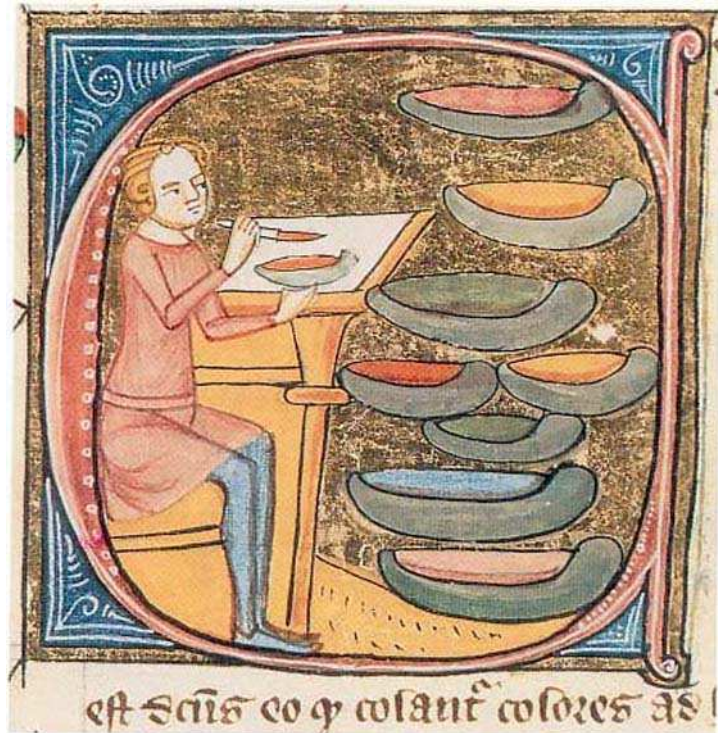 est dcũs eo ꝙ colant᷑ colores ad